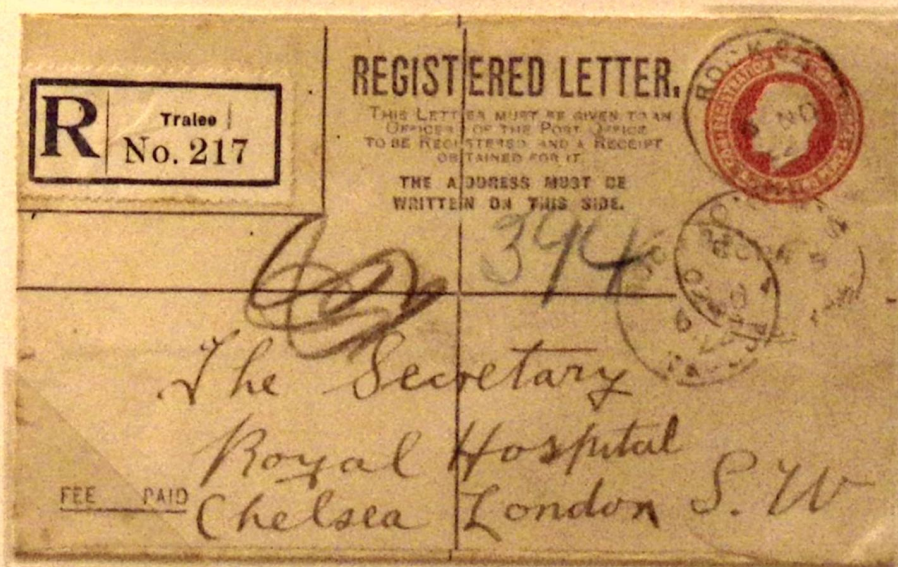 R
Tralee
No. 217
REGISTERED LETTER.
THIS LETTER MUST BE GIVEN TO AN
OFFICER OF THE POST OFFICE
TO BE REGISTERED AND A RECEIPT
OBTAINED FOR IT.
THE ADDRESS MUST BE
WRITTEN ON THIS SIDE.
394
The Secretary
Royal Hospital
Chelsea London S.W
FEE PAID